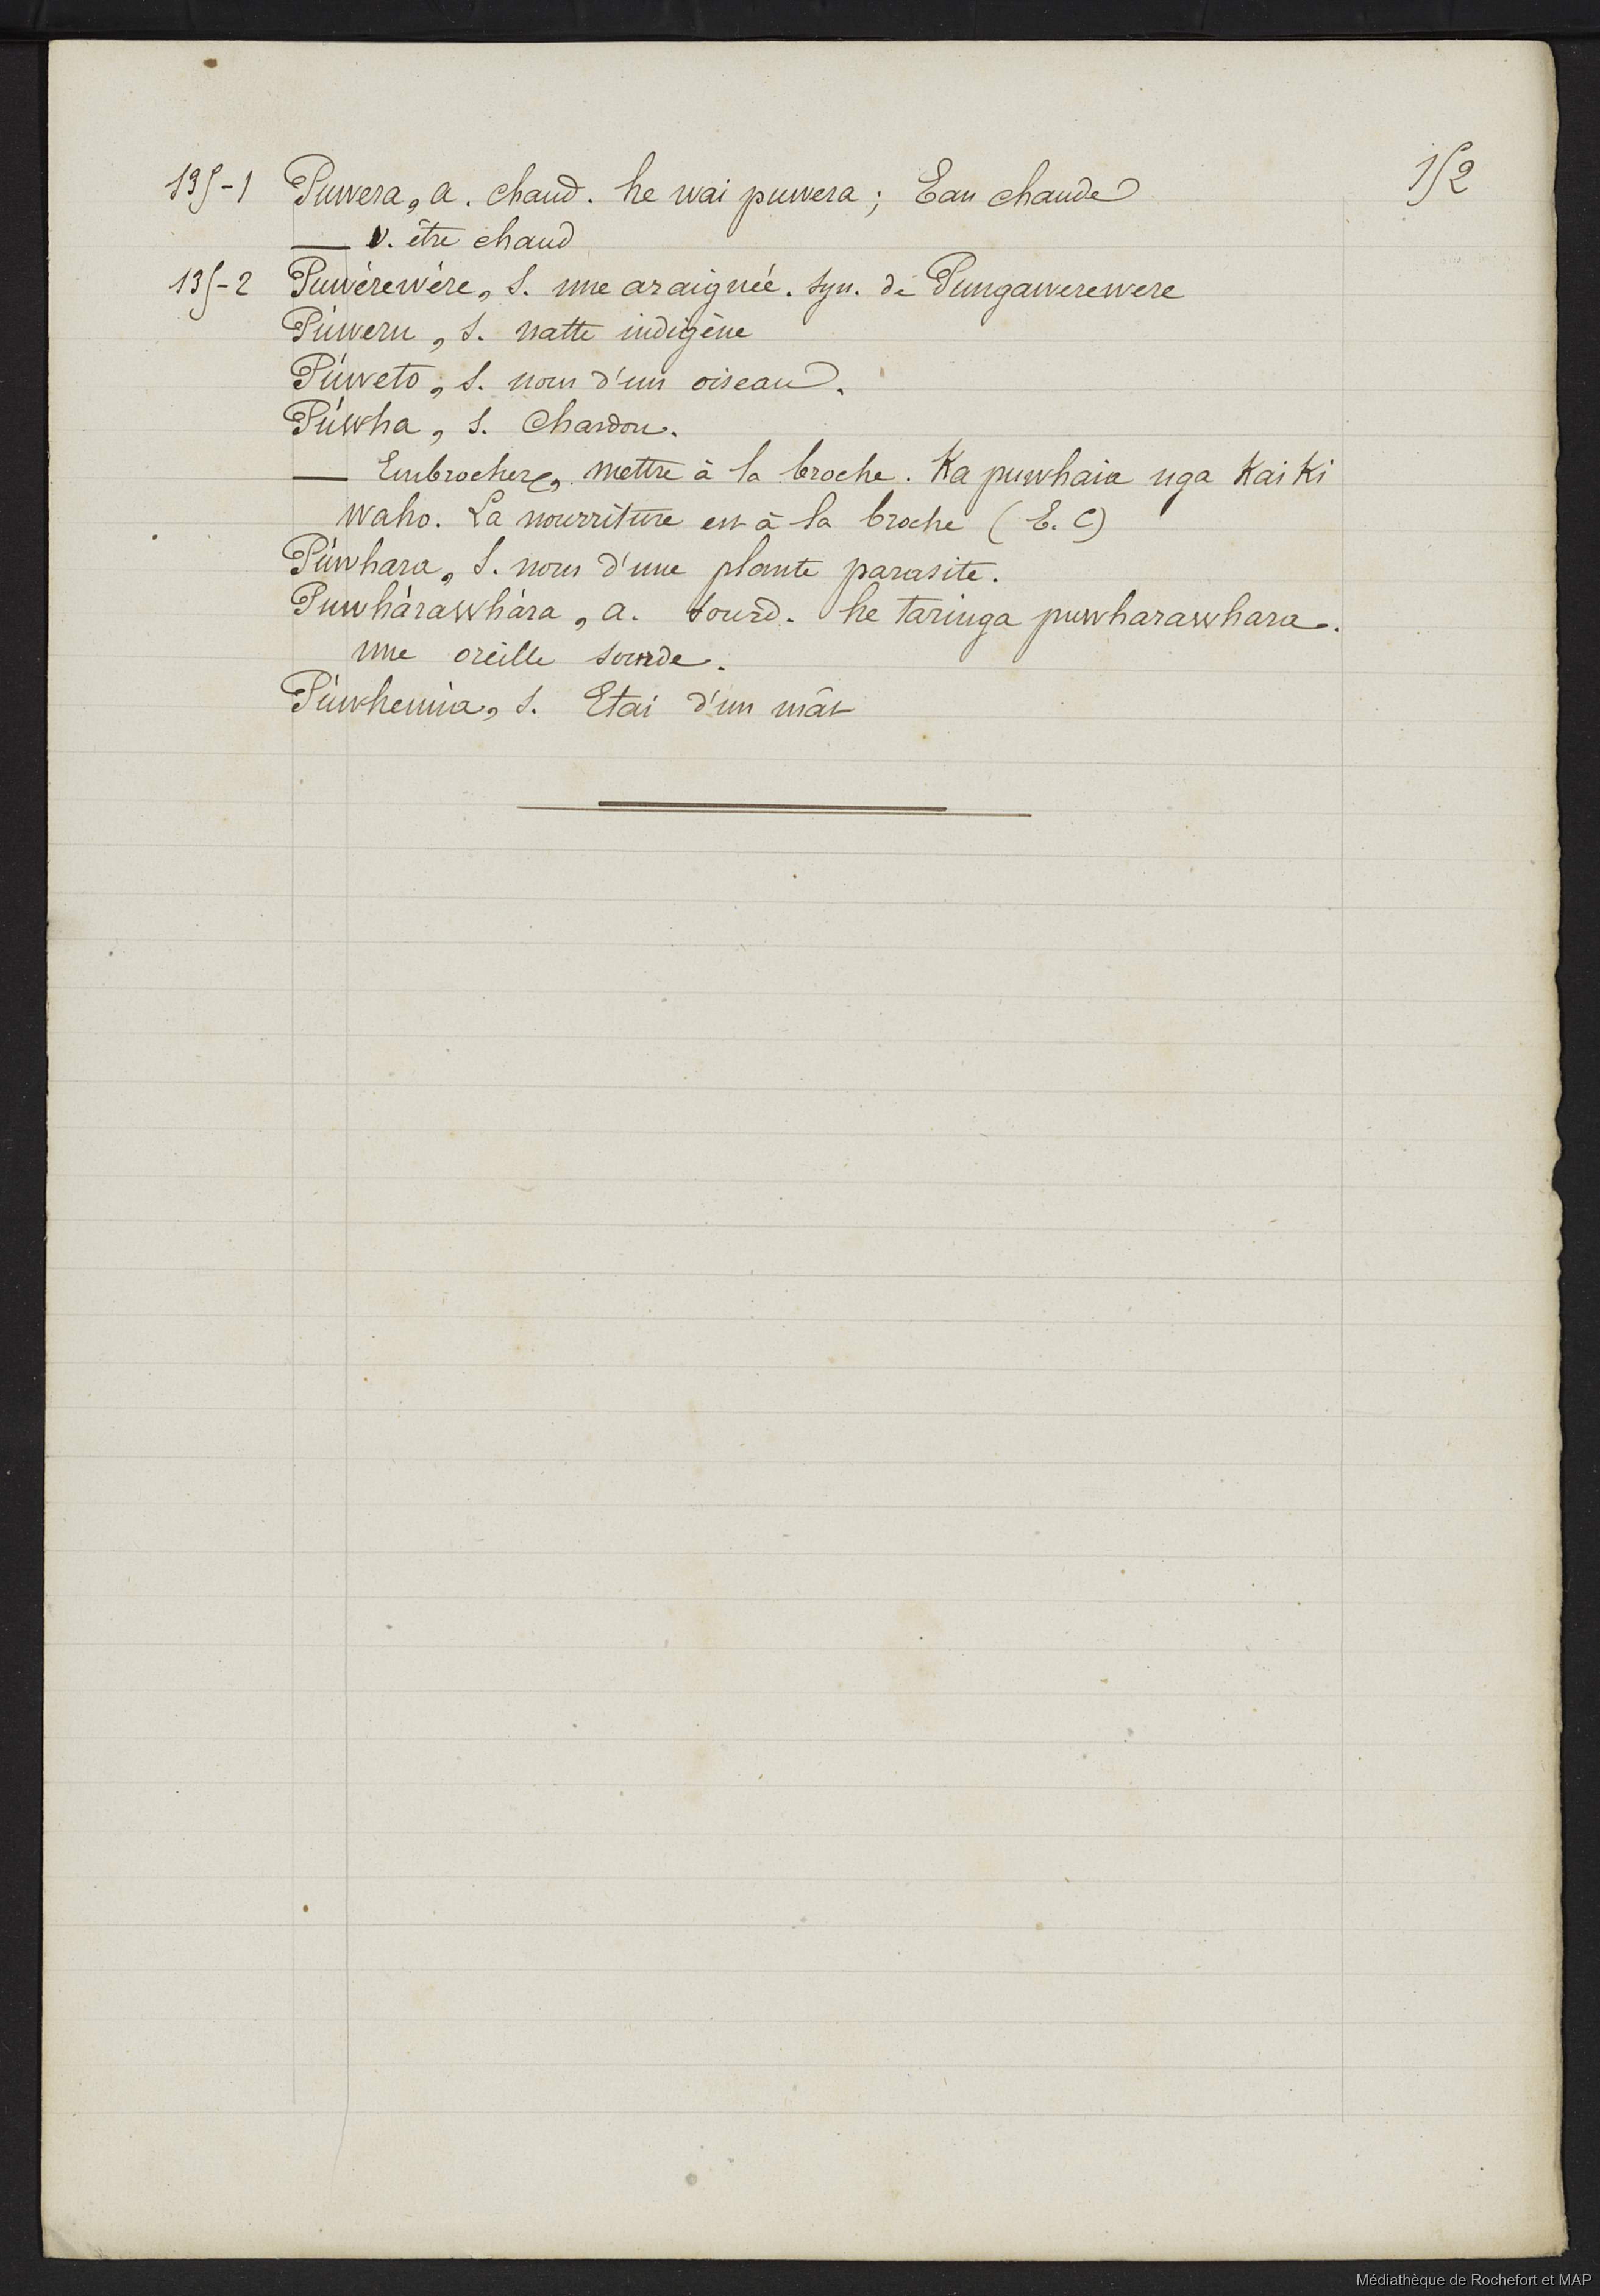 152
135-1 Puwera, a. chaud. he wai puwera; Eau chaude
— v. être chaud
135-2 Puwérewére, s. une araignée. syn. de Pungawerewere
Púweru, s. natte indigène
Púweto, s. nom d'un oiseau.
Púwha, s. Chardon.
— Embrocher, mettre à la broche. Ka puwhaia nga Kai Ki
waho. La nourriture est à la broche (E. C)
Púwhara, s. nom d'une plante parasite.
Puwhárawhára, a. sourd. he taringa puwharawhara.
une oreille sourde.
Púwhenua, s. Etai d'un mât
Médiathèque de Rochefort et MAP